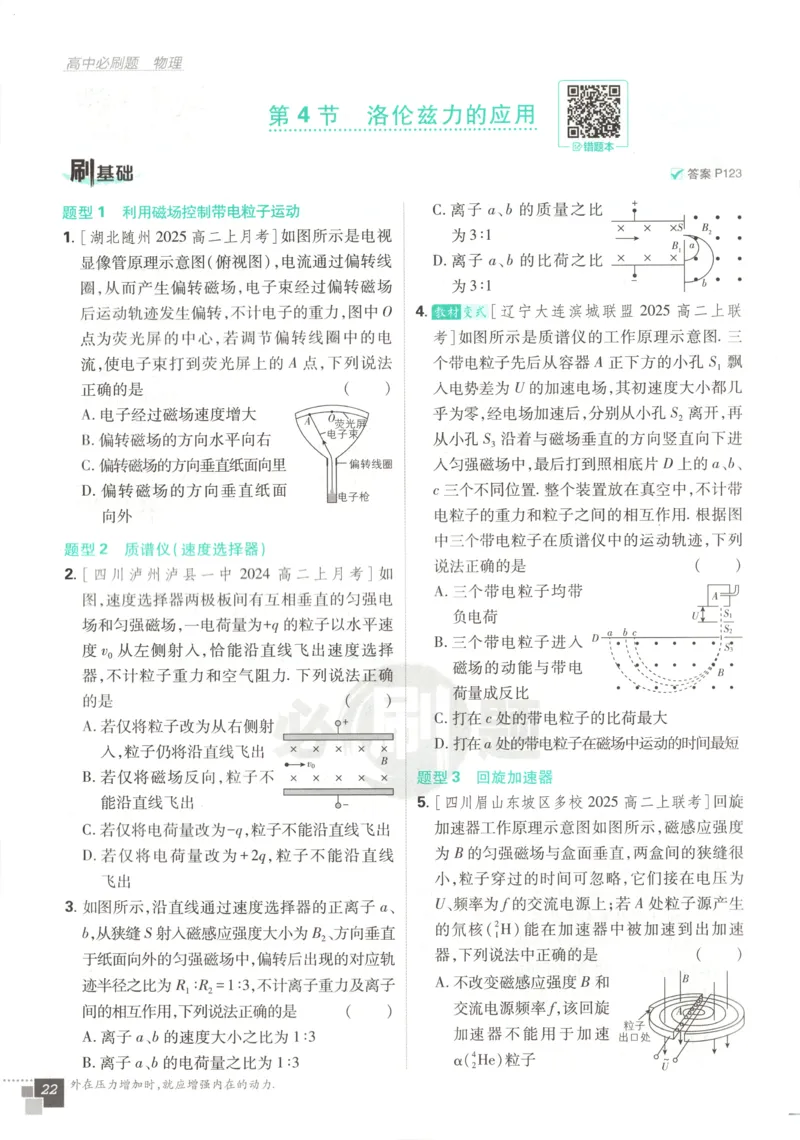 高中必刷题 物理
第 4 节 洛伦兹力的应用
错题本
刷基础
答案 P123
题型 1 利用磁场控制带电粒子运动
1. [湖北随州 2025 高二上月考]如图所示是电视
显像管原理示意图(俯视图),电流通过偏转线
圈,从而产生偏转磁场,电子束经过偏转磁场
后运动轨迹发生偏转,不计电子的重力,图中 O
点为荧光屏的中心,若调节偏转线圈中的电
流,使电子束打到荧光屏上的 A 点,下列说法
正确的是 ( )
A. 电子经过磁场速度增大
B. 偏转磁场的方向水平向右
C. 偏转磁场的方向垂直纸面向里
D. 偏转磁场的方向垂直纸面
向外
A O 荧光屏
电子束
偏转线圈
电子枪
题型 2 质谱仪(速度选择器)
2. [四川泸州泸县一中 2024 高二上月考]如
图,速度选择器两极板间有互相垂直的匀强电
场和匀强磁场,一电荷量为+q 的粒子以水平速
度 v₀ 从左侧射入,恰能沿直线飞出速度选择
器,不计粒子重力和空气阻力. 下列说法正确
的是 ( )
A. 若仅将粒子改为从右侧射
入,粒子仍将沿直线飞出
B. 若仅将磁场反向,粒子不
能沿直线飞出
C. 若仅将电荷量改为-q,粒子不能沿直线飞出
D. 若仅将电荷量改为+2q,粒子不能沿直线
飞出
+
× × × × ×
v₀ B
× × × × ×
-
3. 如图所示,沿直线通过速度选择器的正离子 a、
b,从狭缝 S 射入磁感应强度大小为 B₂、方向垂直
于纸面向外的匀强磁场中,偏转后出现的对应轨
迹半径之比为 R₁:R₂=1:3,不计离子重力及离子
间的相互作用,下列说法正确的是 ( )
A. 离子 a、b 的速度大小之比为 1:3
B. 离子 a、b 的电荷量之比为 1:3
C. 离子 a、b 的质量之比
为 3:1
D. 离子 a、b 的比荷之比
为 3:1
+
× × × S B₂
B₁ a
× × ×
- b
4. 教材变式 [辽宁大连滨城联盟 2025 高二上联
考]如图所示是质谱仪的工作原理示意图. 三
个带电粒子先后从容器 A 正下方的小孔 S₁ 飘
入电势差为 U 的加速电场,其初速度大小都几
乎为零,经电场加速后,分别从小孔 S₂ 离开,再
从小孔 S₃ 沿着与磁场垂直的方向竖直向下进
入匀强磁场中,最后打到照相底片 D 上的 a、b、
c 三个不同位置. 整个装置放在真空中,不计带
电粒子的重力和粒子之间的相互作用. 根据图
中三个带电粒子在质谱仪中的运动轨迹,下列
说法正确的是 ( )
A. 三个带电粒子均带
负电荷
B. 三个带电粒子进入
磁场的动能与带电
荷量成反比
C. 打在 c 处的带电粒子的比荷最大
D. 打在 a 处的带电粒子在磁场中运动的时间最短
A
U S₁
S₂
D a b c
S₃
B
题型 3 回旋加速器
5. [四川眉山东坡区多校 2025 高二上联考]回旋
加速器工作原理示意图如图所示,磁感应强度
为 B 的匀强磁场与盒面垂直,两盒间的狭缝很
小,粒子穿过的时间可忽略,它们接在电压为
U、频率为 f 的交流电源上;若 A 处粒子源产生
的氘核(²₁H)能在加速器中被加速到出加速
器,下列说法中正确的是 ( )
A. 不改变磁感应强度 B 和
交流电源频率 f,该回旋
加速器不能用于加速
α(⁴₂He)粒子
B
A
粒子
出口处
~
U
必刷题
22
外在压力增加时,就应增强内在的动力.